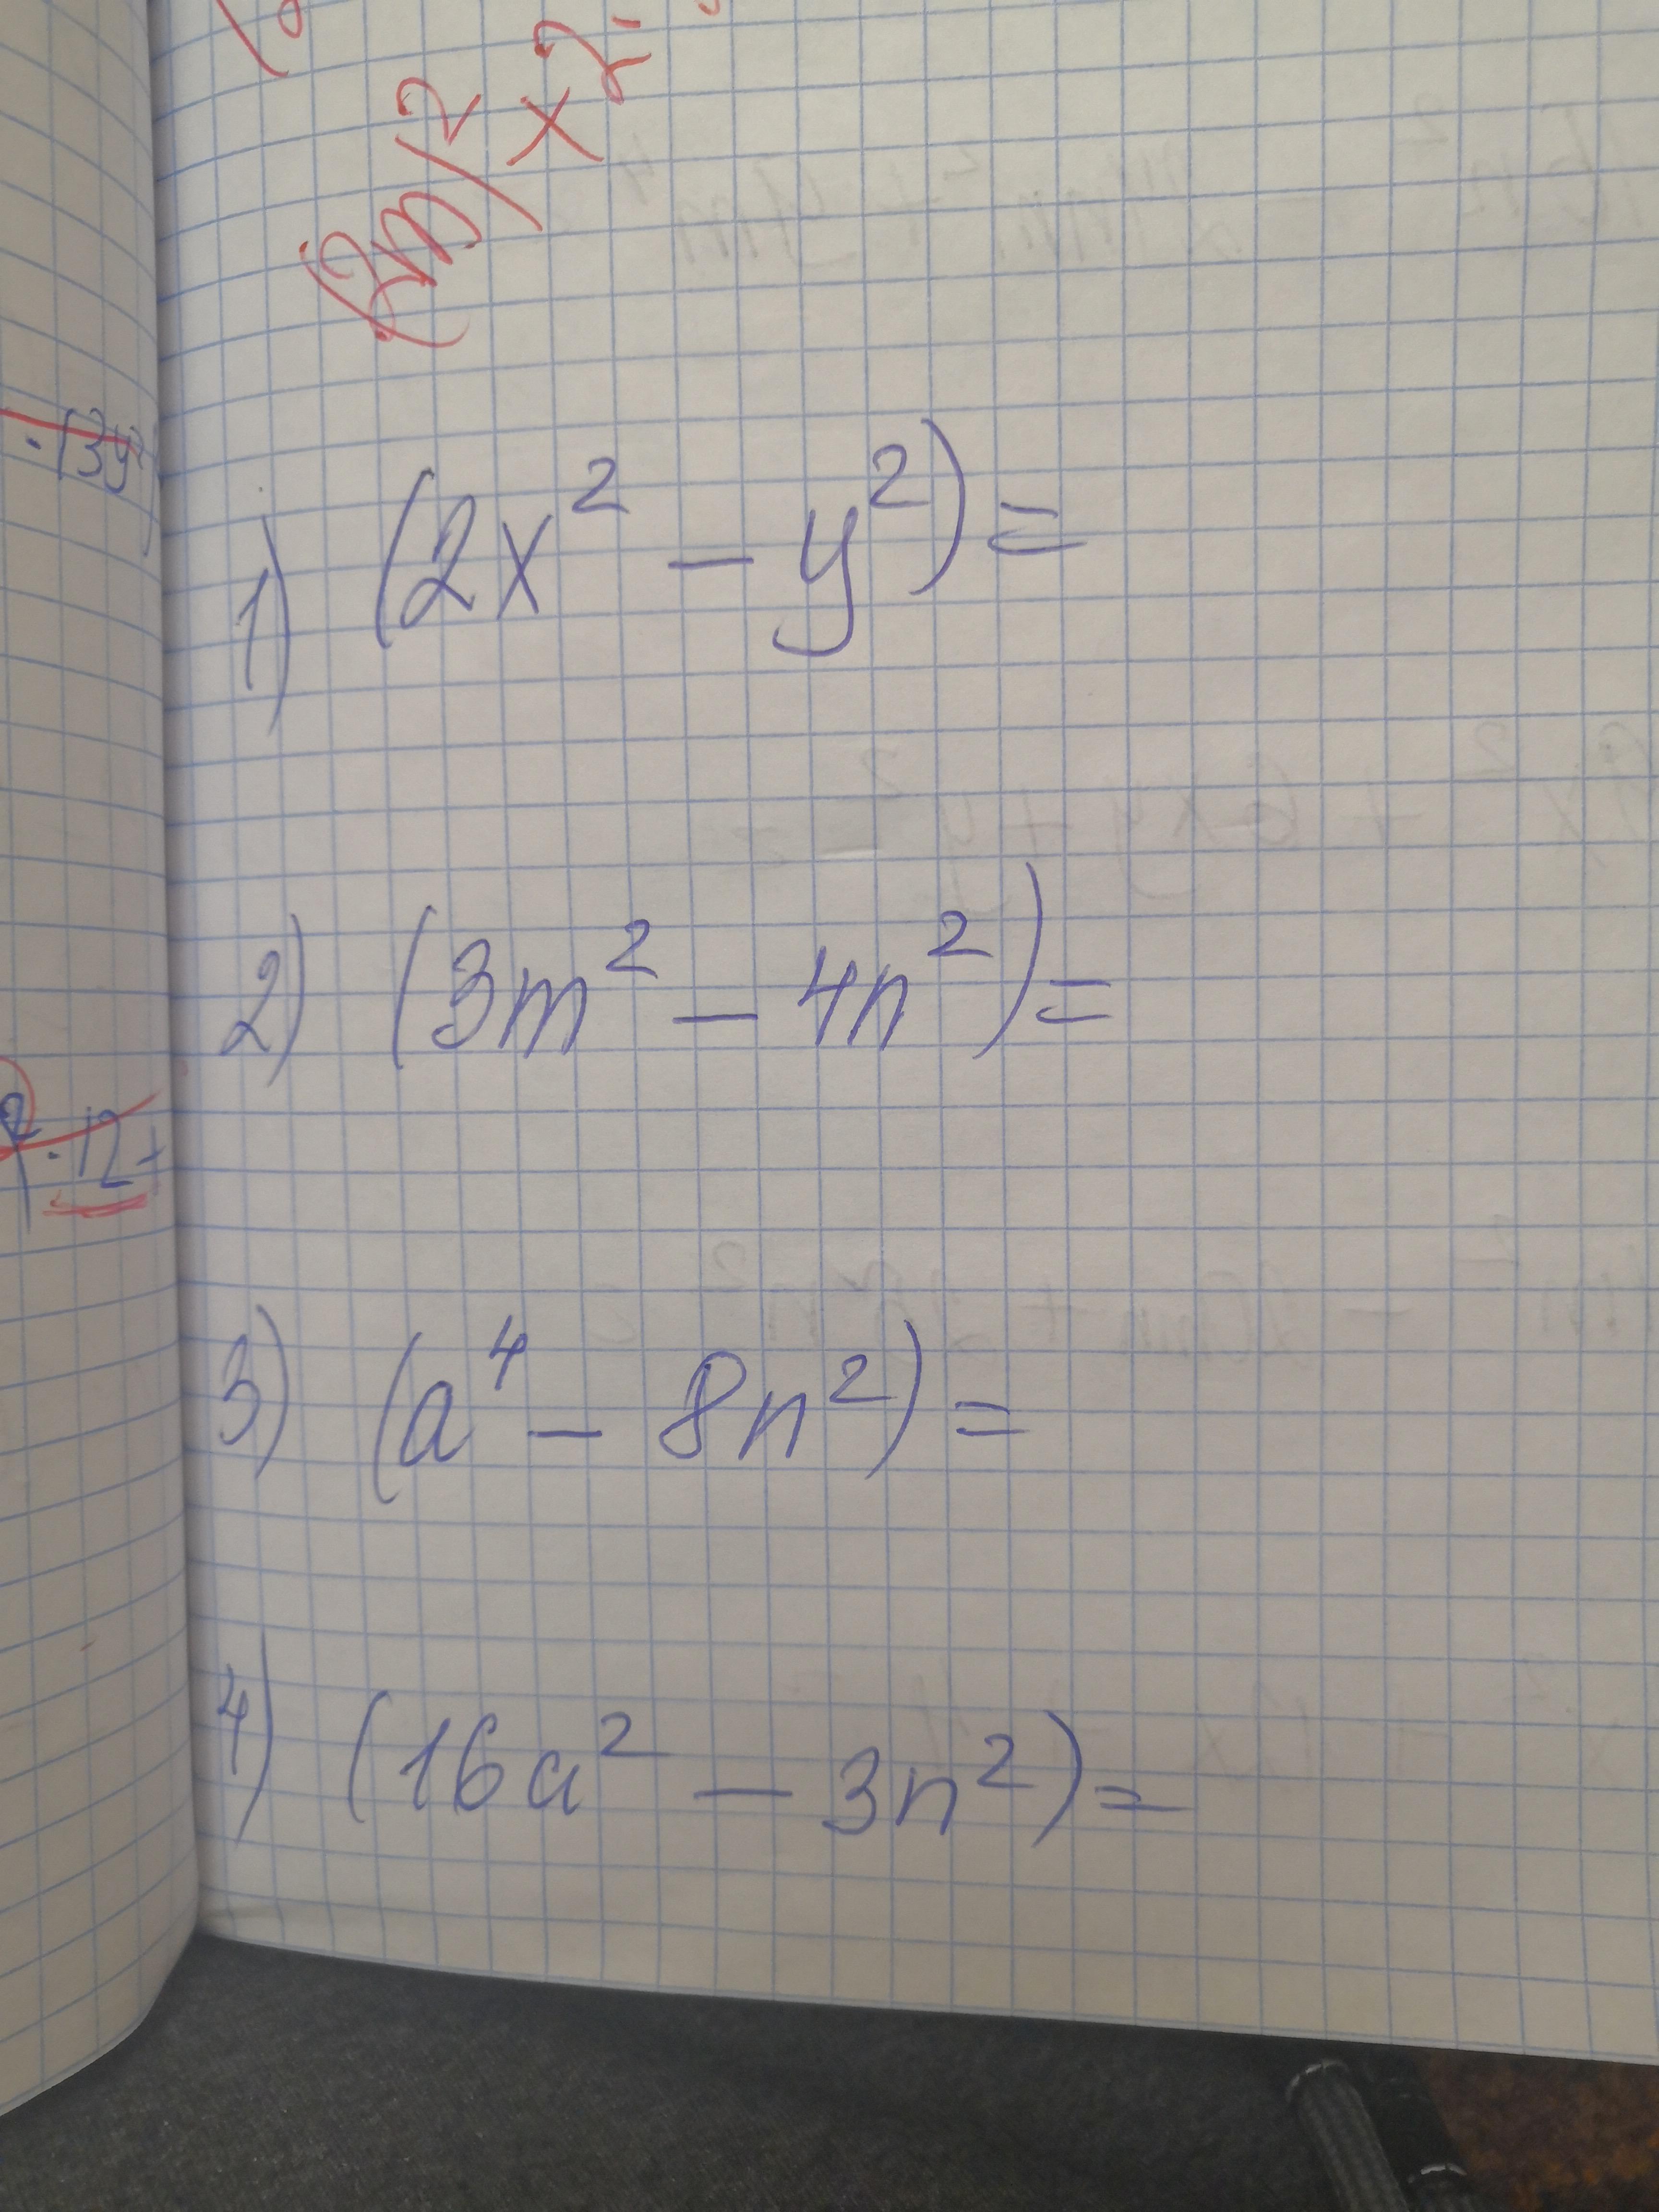 (3m)²
x²
·(3y)
1) (2x² - y²) =
2) (3m² - 4n²) =
· 12 +
3) (a⁴ - 8n²) =
4) (16a² - 3n²) =